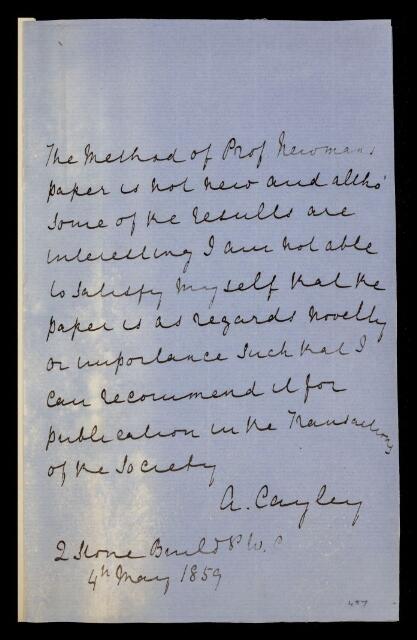 The Method of Prof Newmans
paper is not new and altho'
some of the results are
interesting I am not able
to satisfy myself that the
paper is as regards novelty
or importance such that I
can recommend it for
publication in the Transactions
of the Society
A. Cayley
2 Stone Buildgs W. C
4th May 1859